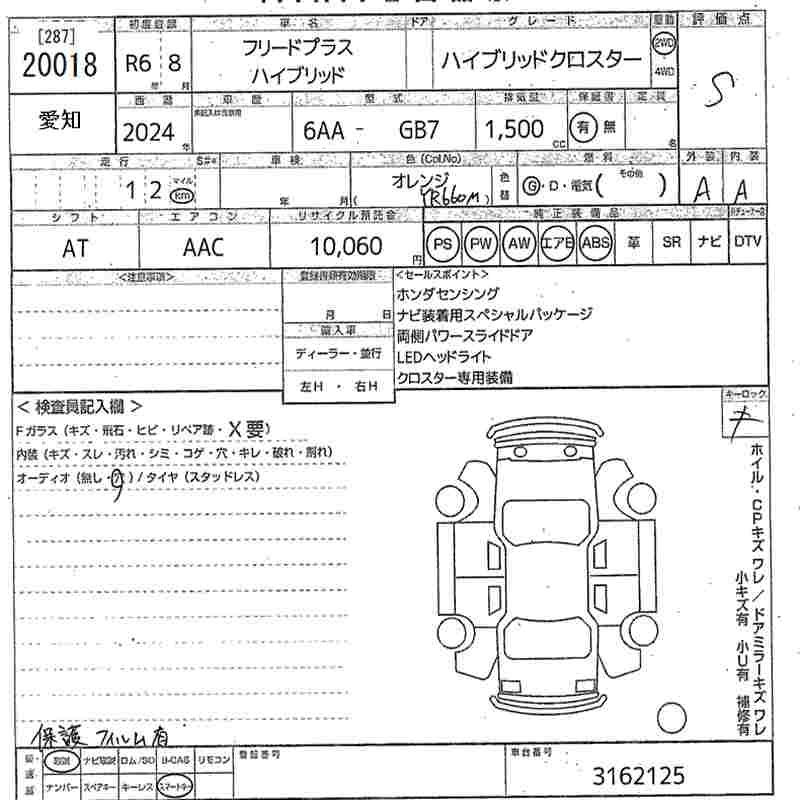 [287]
20018
初度登録
R6 8
年 月
車名
フリードプラス
ハイブリッド
ドア
グレード
ハイブリッドクロスター
駆動
2WD
4WD
評価点
S
愛知
西暦
2024 年
車歴
型式
6AA - GB7
排気量
1,500 cc
保証書
有 無
定員
名
走行
12
マイル
km
車検
年 月
色 (Col.No)
オレンジ
(YR660M)
色替
燃料
G・D・電気( その他 )
外装
A
内装
A
シフト
AT
エアコン
AAC
リサイクル預託金
10,060 円
純正装備品
PS PW AW エアB ABS 革 SR ナビ DTV
<注意事項>
登録書類有効期限
月 日
輸入車
ディーラー・並行
左H ・ 右H
<セールスポイント>
ホンダセンシング
ナビ装着用スペシャルパッケージ
両側パワースライドドア
LEDヘッドライト
クロスター専用装備
< 検査員記入欄 >
Fガラス (キズ・飛石・ヒビ・リペア跡・X要)
内装 (キズ・スレ・汚れ・シミ・コゲ・穴・キレ・破れ・削れ)
オーディオ (無し・穴) / タイヤ (スタッドレス)
キーロック
ホイル・CPキズ ワレ / ドアミラーキズ ワレ
小キズ有 小U有 補修有
保護フィルム有
取説 ナビ取説 ロム/SD B-CAS リモコン
ナンバー スペアキー キーレス スマートキー
登録番号
車台番号
3162125